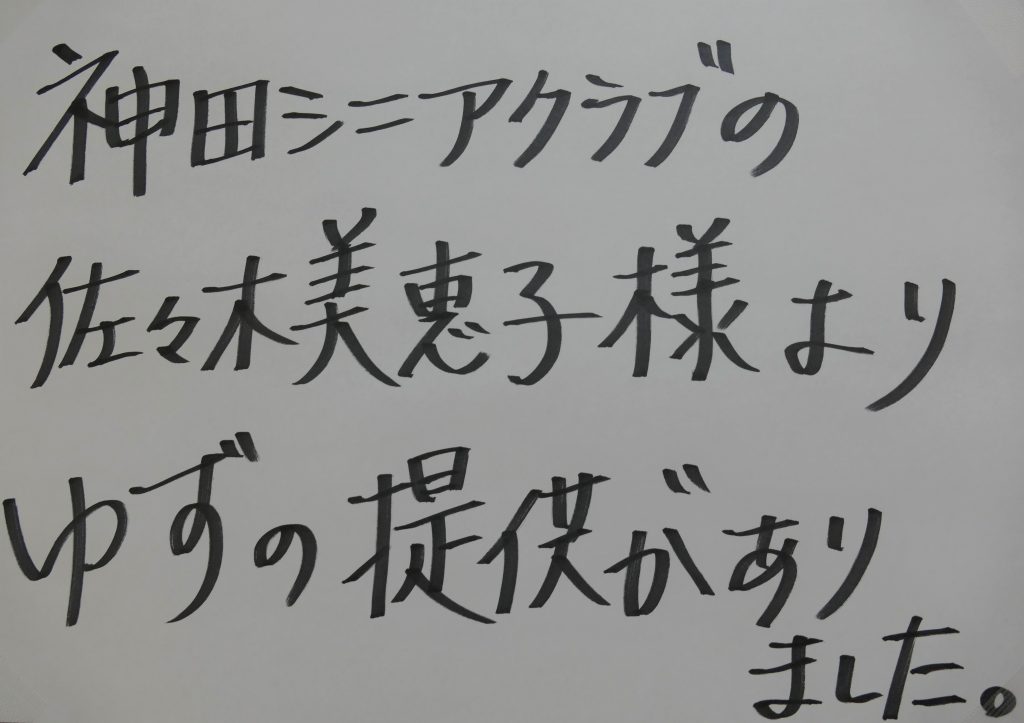 神田シニアクラブの
佐々木美恵子様より
ゆずの提供があり
ました。